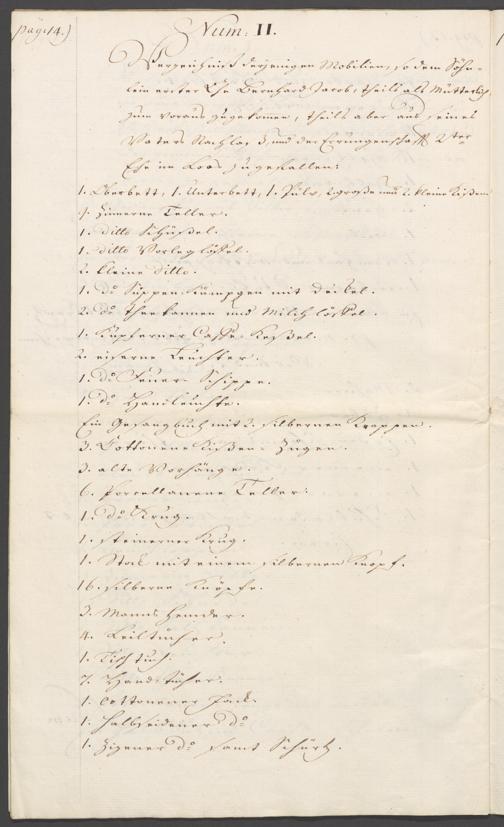 pag: 14.)
Num: II.
Verzeichniß derjenigen Mobilien, so dem Söhn-
lein erster Ehe Bernhard Jacob, theils als Mütterlich
zum voraus zugekomen, theils aber aus seines
Vaters Nachlaß, und der Errungenschafft 2ter
Ehe im Loos zugefallen:
1. Oberbett, 1. Unterbett, 1. Pülv, 2 große und 2. kleine Kißen
4. Zinnerne Teller.
1. ditto Schüßel.
1. ditto Vorleglöffel.
2. kleine ditto.
1. do Suppen Kümpgen mit Deckel.
2. do Theekannen und Milchlöffel.
1. Kupferner Caffe-Keßel.
2. eiserne Leuchter.
1. do Feuer-Schippe.
1. do Handleuchte.
Ein Gesangbuch mit 2. silbernen Krappen.
3. Cottonene Kißen-Zügen.
3. alte Vorhänge.
6. Porcellanene Teller.
1. do Krug.
1. steinerner Krug.
1. Stock mit einem silbernen Knopf.
16. silberne Knöpfe.
3. Manns Hemder.
4. Leiltücher.
1. Tischtuch.
7. Handtücher.
1. Cottonener Jack.
1. halbseidener do
1. Zizener do samt Schürtz.